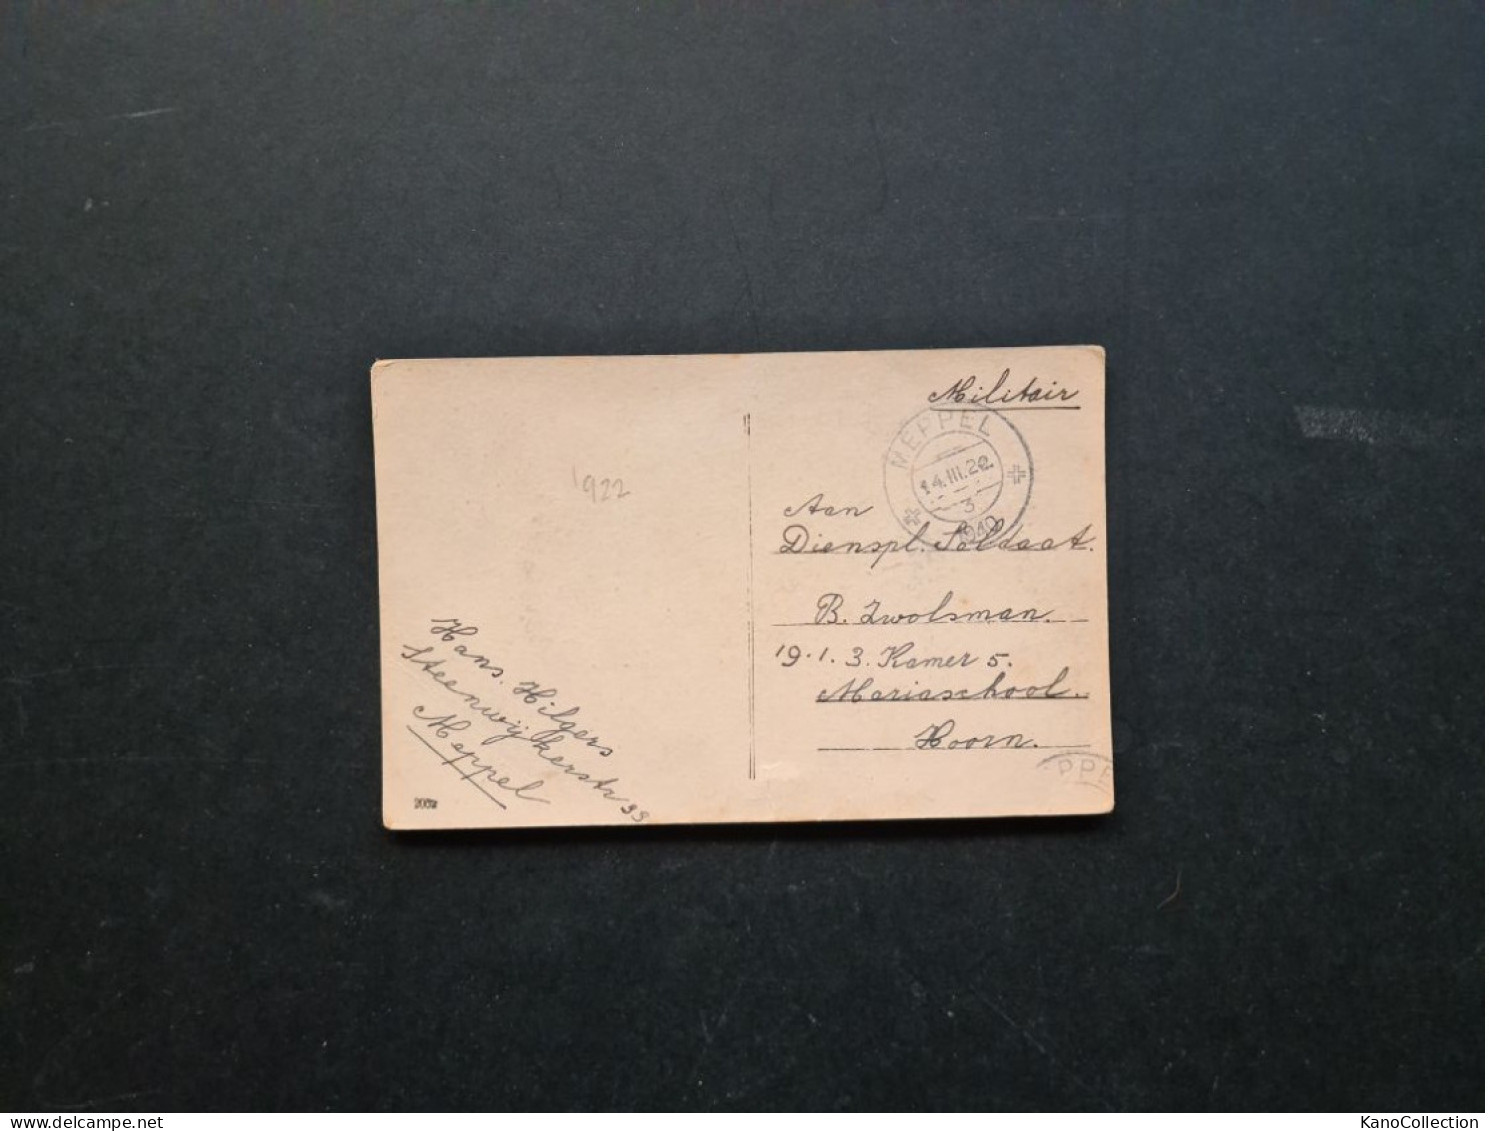 Militair
MEPPEL
14.III.22.
3
1940
1922
Aan
Dienspl. Soldaat.
B. Zwolsman.
19.1.3. Kamer 5.
Mariaschool.
Hoorn.
Hans. Hilgers
Steenwijkerstr 33
Meppel
PPE
KanoCollection